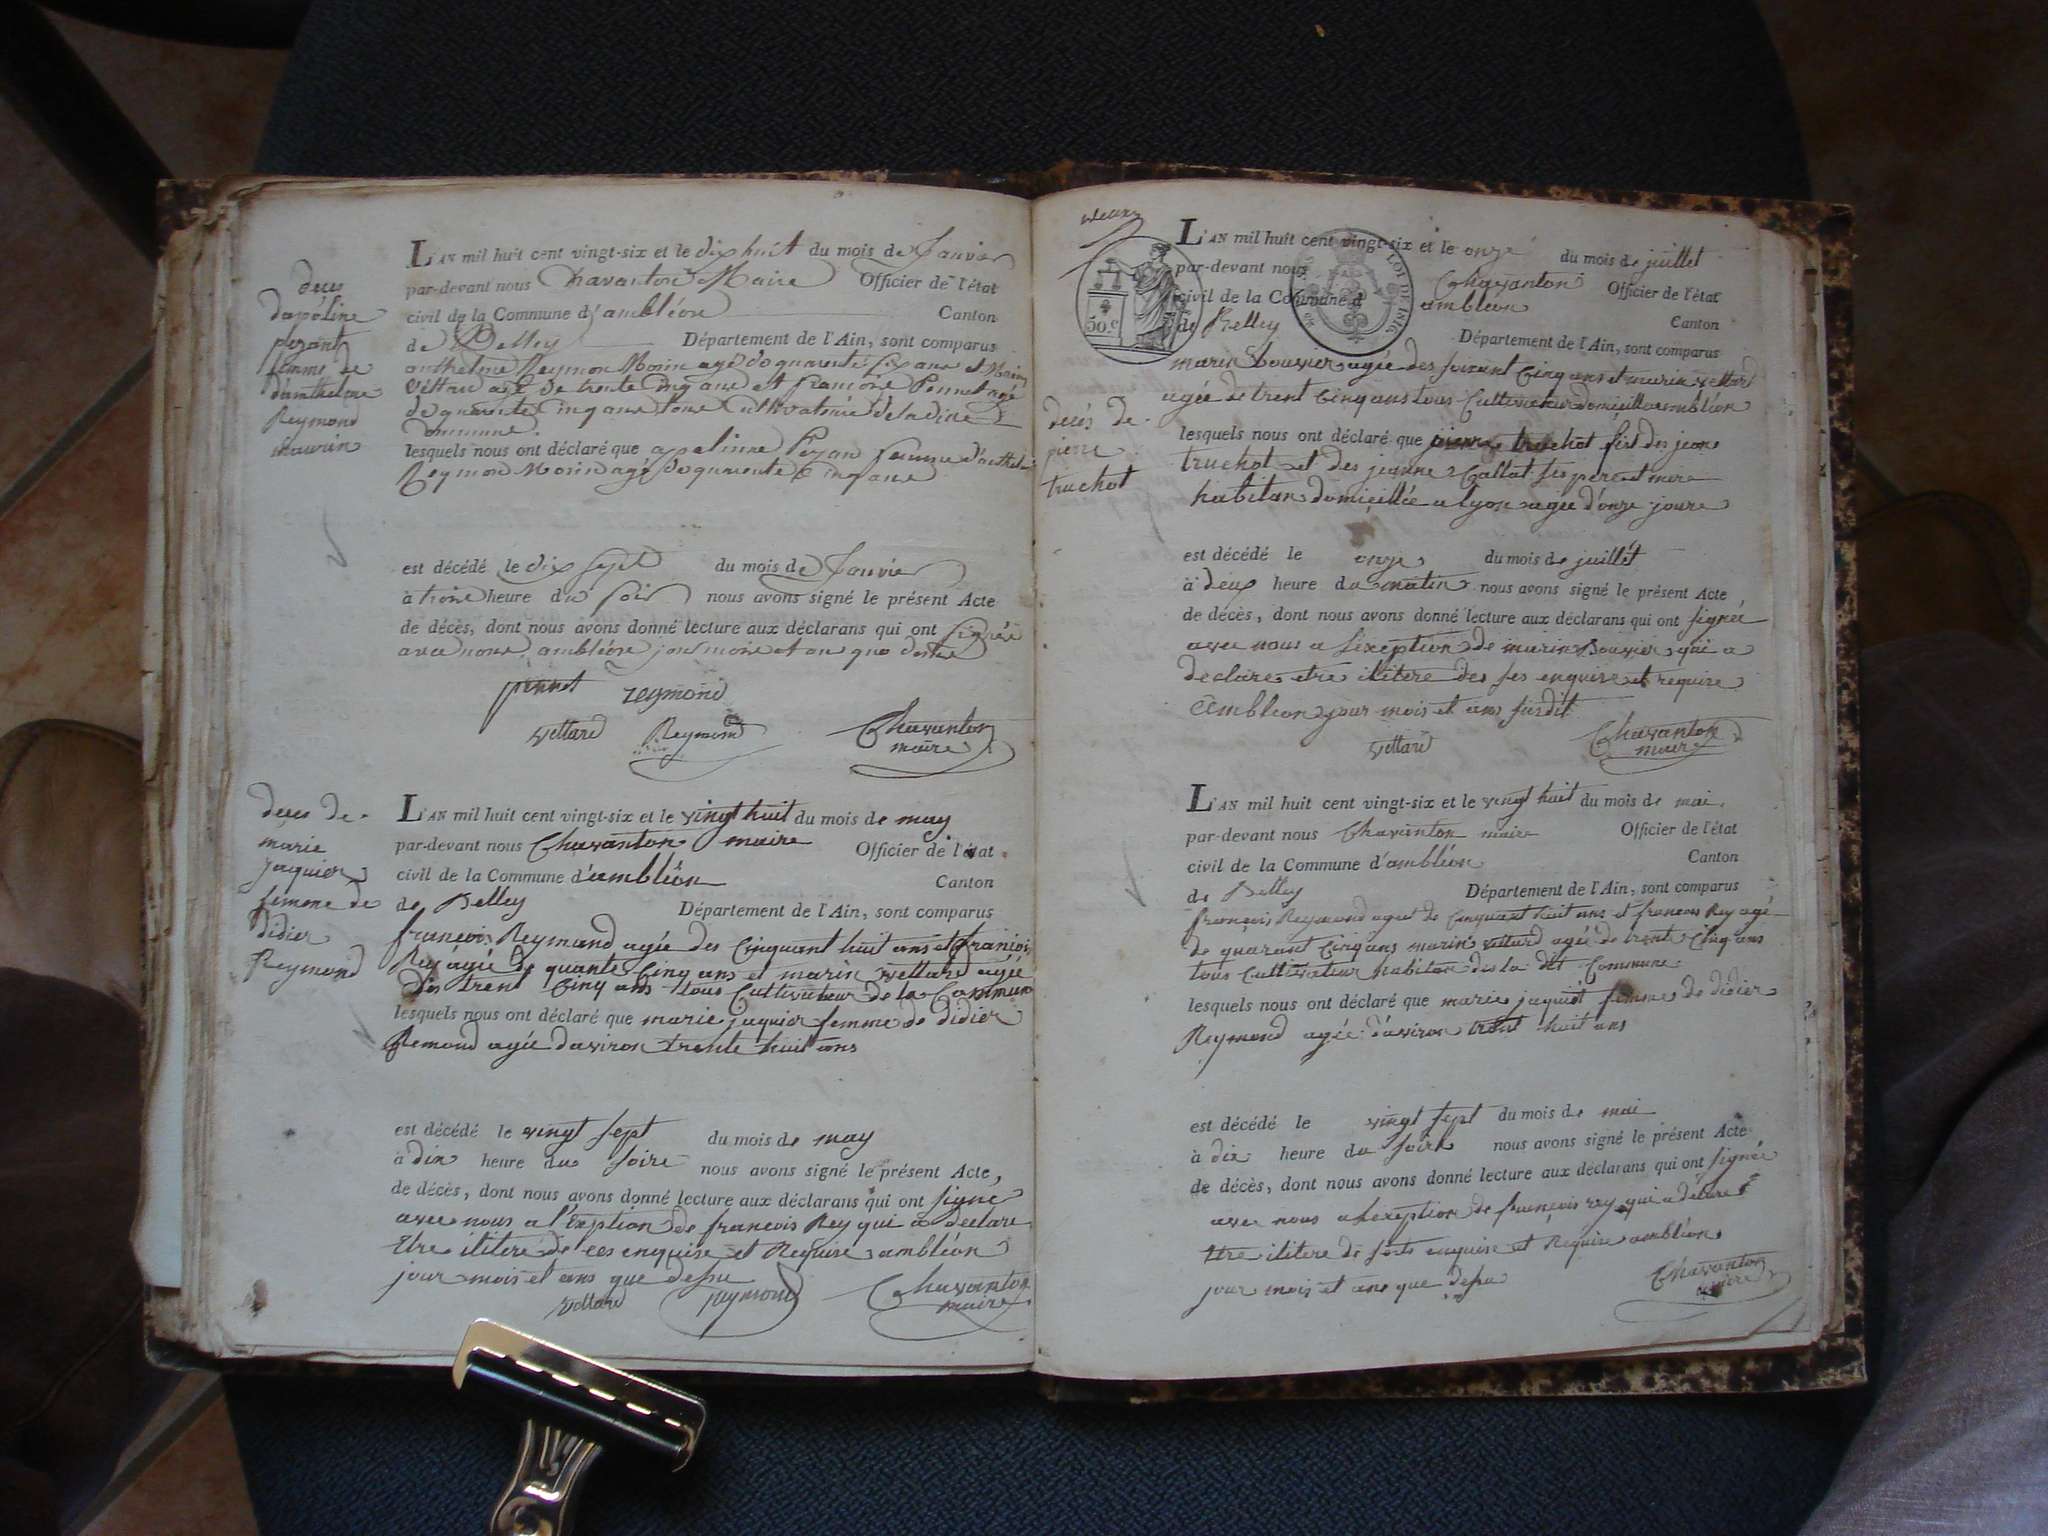 L'AN mil huit cent vingt-six et le dix huit du mois de Janvier
par-devant nous Chavanton Maire Officier de l'état
civil de la Commune d'ambléon Canton
de Belley Département de l'Ain, sont comparus
anthelme Reymon Morin agé de quarente six ans et Marin
vettard agé de trente cinq ans et francois Pennet agé
de quarente cinq ans tous cultivateurs de la dite
commune.
lesquels nous ont déclaré que apolinne Pezan femme d'anthelme
Reymon Morin agé de quarente cinq ans
est décédé le dix sept du mois de Janvier
à troie heure du soir nous avons signé le présent Acte
de décès, dont nous avons donné lecture aux déclarans qui ont signée
avec nous ambléon jour mois et an que dessus
pennet reymond
vettard Reymond Chavanton
maire
deces
dapoline
pezant
femme de
d'anthelme
Reymond
maurin
L'AN mil huit cent vingt-six et le vingt huit du mois de may
par-devant nous Chavanton maire Officier de l'état
civil de la Commune d'ambléon Canton
de Belley Département de l'Ain, sont comparus
francois Reymond agée des cinquant huit ans et francois
Rey agée de quante cinq ans et marin vettard agée
des trent cinq ans tous cultivateur de la Commun
lesquels nous ont déclaré que marie jaquier femme de didier
Remond agée daviron trente huit ans
est décédé le vingt sept du mois de may
à dix heure du soire nous avons signé le présent Acte,
de décès, dont nous avons donné lecture aux déclarans qui ont signé
avec nous a l'exption de francois Rey qui a declare
etre ilitere de ces enquise et Requise ambléon
jour mois et ans que desu
vettard reymond Chavanton
maire
deces de
marie
jaquier
femme de
didier
Reymond
deux
50.c
LOI DE 1816
L'AN mil huit cent vingt-six et le onze du mois de juillet
par-devant nous Chavanton Officier de l'état
civil de la Commune d ambléon Canton
de Belley Département de l'Ain, sont comparus
marin bouvier agée des soixant cinq ans et marin vettard
agée de trent cinq ans tous cultivateur domicillé a ambléon
lesquels nous ont déclaré que pierre truchot fist des jean
truchot et des jeanne Callot ses pere et mere
habitan domicillée a lyon agée d'onze jours
est décédé le onze du mois de juillét
à deux heure du matin nous avons signé le présent Acte
de décès, dont nous avons donné lecture aux déclarans qui ont signée
avec nous a lexeption de marin Bouvier qui a
declare etre ilitere des ses enquise et requise
Ambleon jour mois et ans susdit
vettard Chavanton
maire
decés de
pierre
truchot
L'AN mil huit cent vingt-six et le vingt huit du mois de mai
par-devant nous Chavanton maire Officier de l'état
civil de la Commune d'ambléon Canton
de Belley Département de l'Ain, sont comparus
francois Reymond aget de cinquant huit ans et francois Rey agé
de quarant cinq ans marin vettard agée de trent cinq ans
tous cultivateur habitan des la dit Commune
lesquels nous ont déclaré que marie jaquiét femme de didier
Reymond agée d'aviron trent huit ans
est décédé le vingt sept du mois de mai
à dix heure du soire nous avons signé le présent Acte
de décès, dont nous avons donné lecture aux déclarans qui ont signée
avec nous a lexeption de francois rey qui a declare
etre ilitere de enquise et Requise ambléon
jour mois et ans que desu
Chavanton
maire